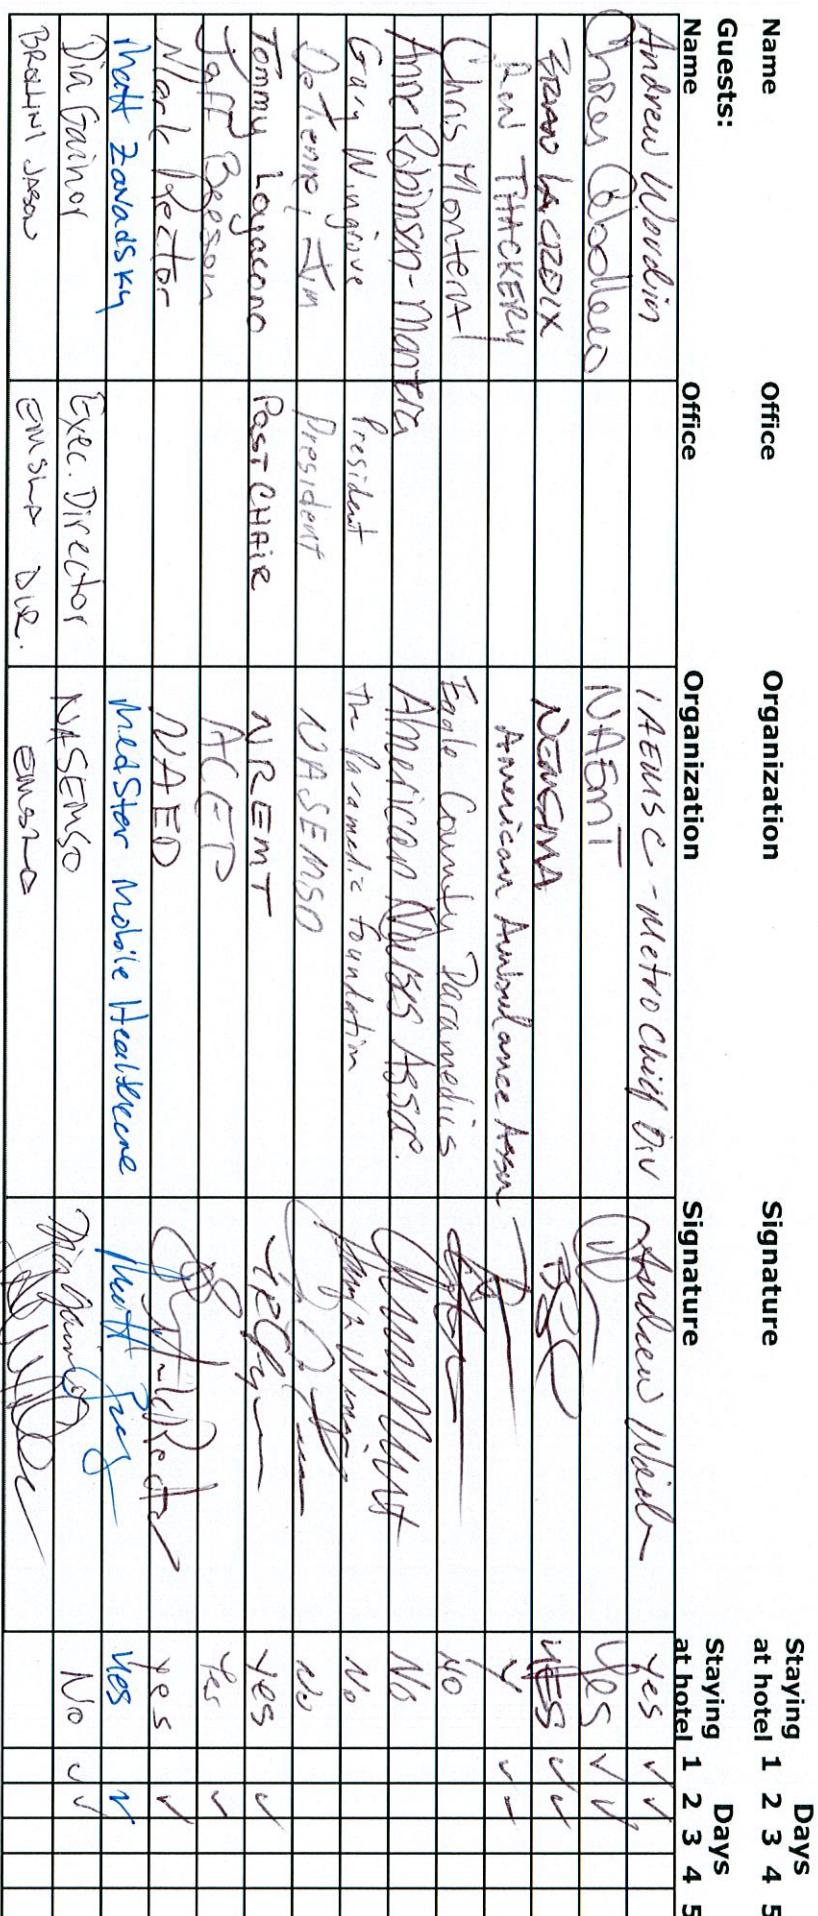 Name Office Organization Signature Staying at hotel Days 1 2 3 4 5
Guests:
Name Office Organization Signature Staying at hotel Days 1 2 3 4 5
Andrew Wordin IAEMSC - Metro Chief Div Yes ✓ ✓
NAEMT Yes ✓ ✓
NEMSMA YES ✓ ✓
THACKERY American Ambulance Assn Y ✓ -
Chris Montera Eagle County Paramedics No
Anne Robinson-Montera American Nurses Assoc. No
Gary Wingrove President The Paramedic Foundation No
DeTienne, Jim President NASEMSO No
Tommy Loyacono Past CHAIR NREMT Yes ✓
Jeff Beeson ACEP Yes ✓
Mark Rector NAED Yes ✓
Matt Zavadsky MedStar Mobile Healthcare Yes ✓
Dia Gainor Exec. Director NASEMSO No ✓ ✓
DIR.